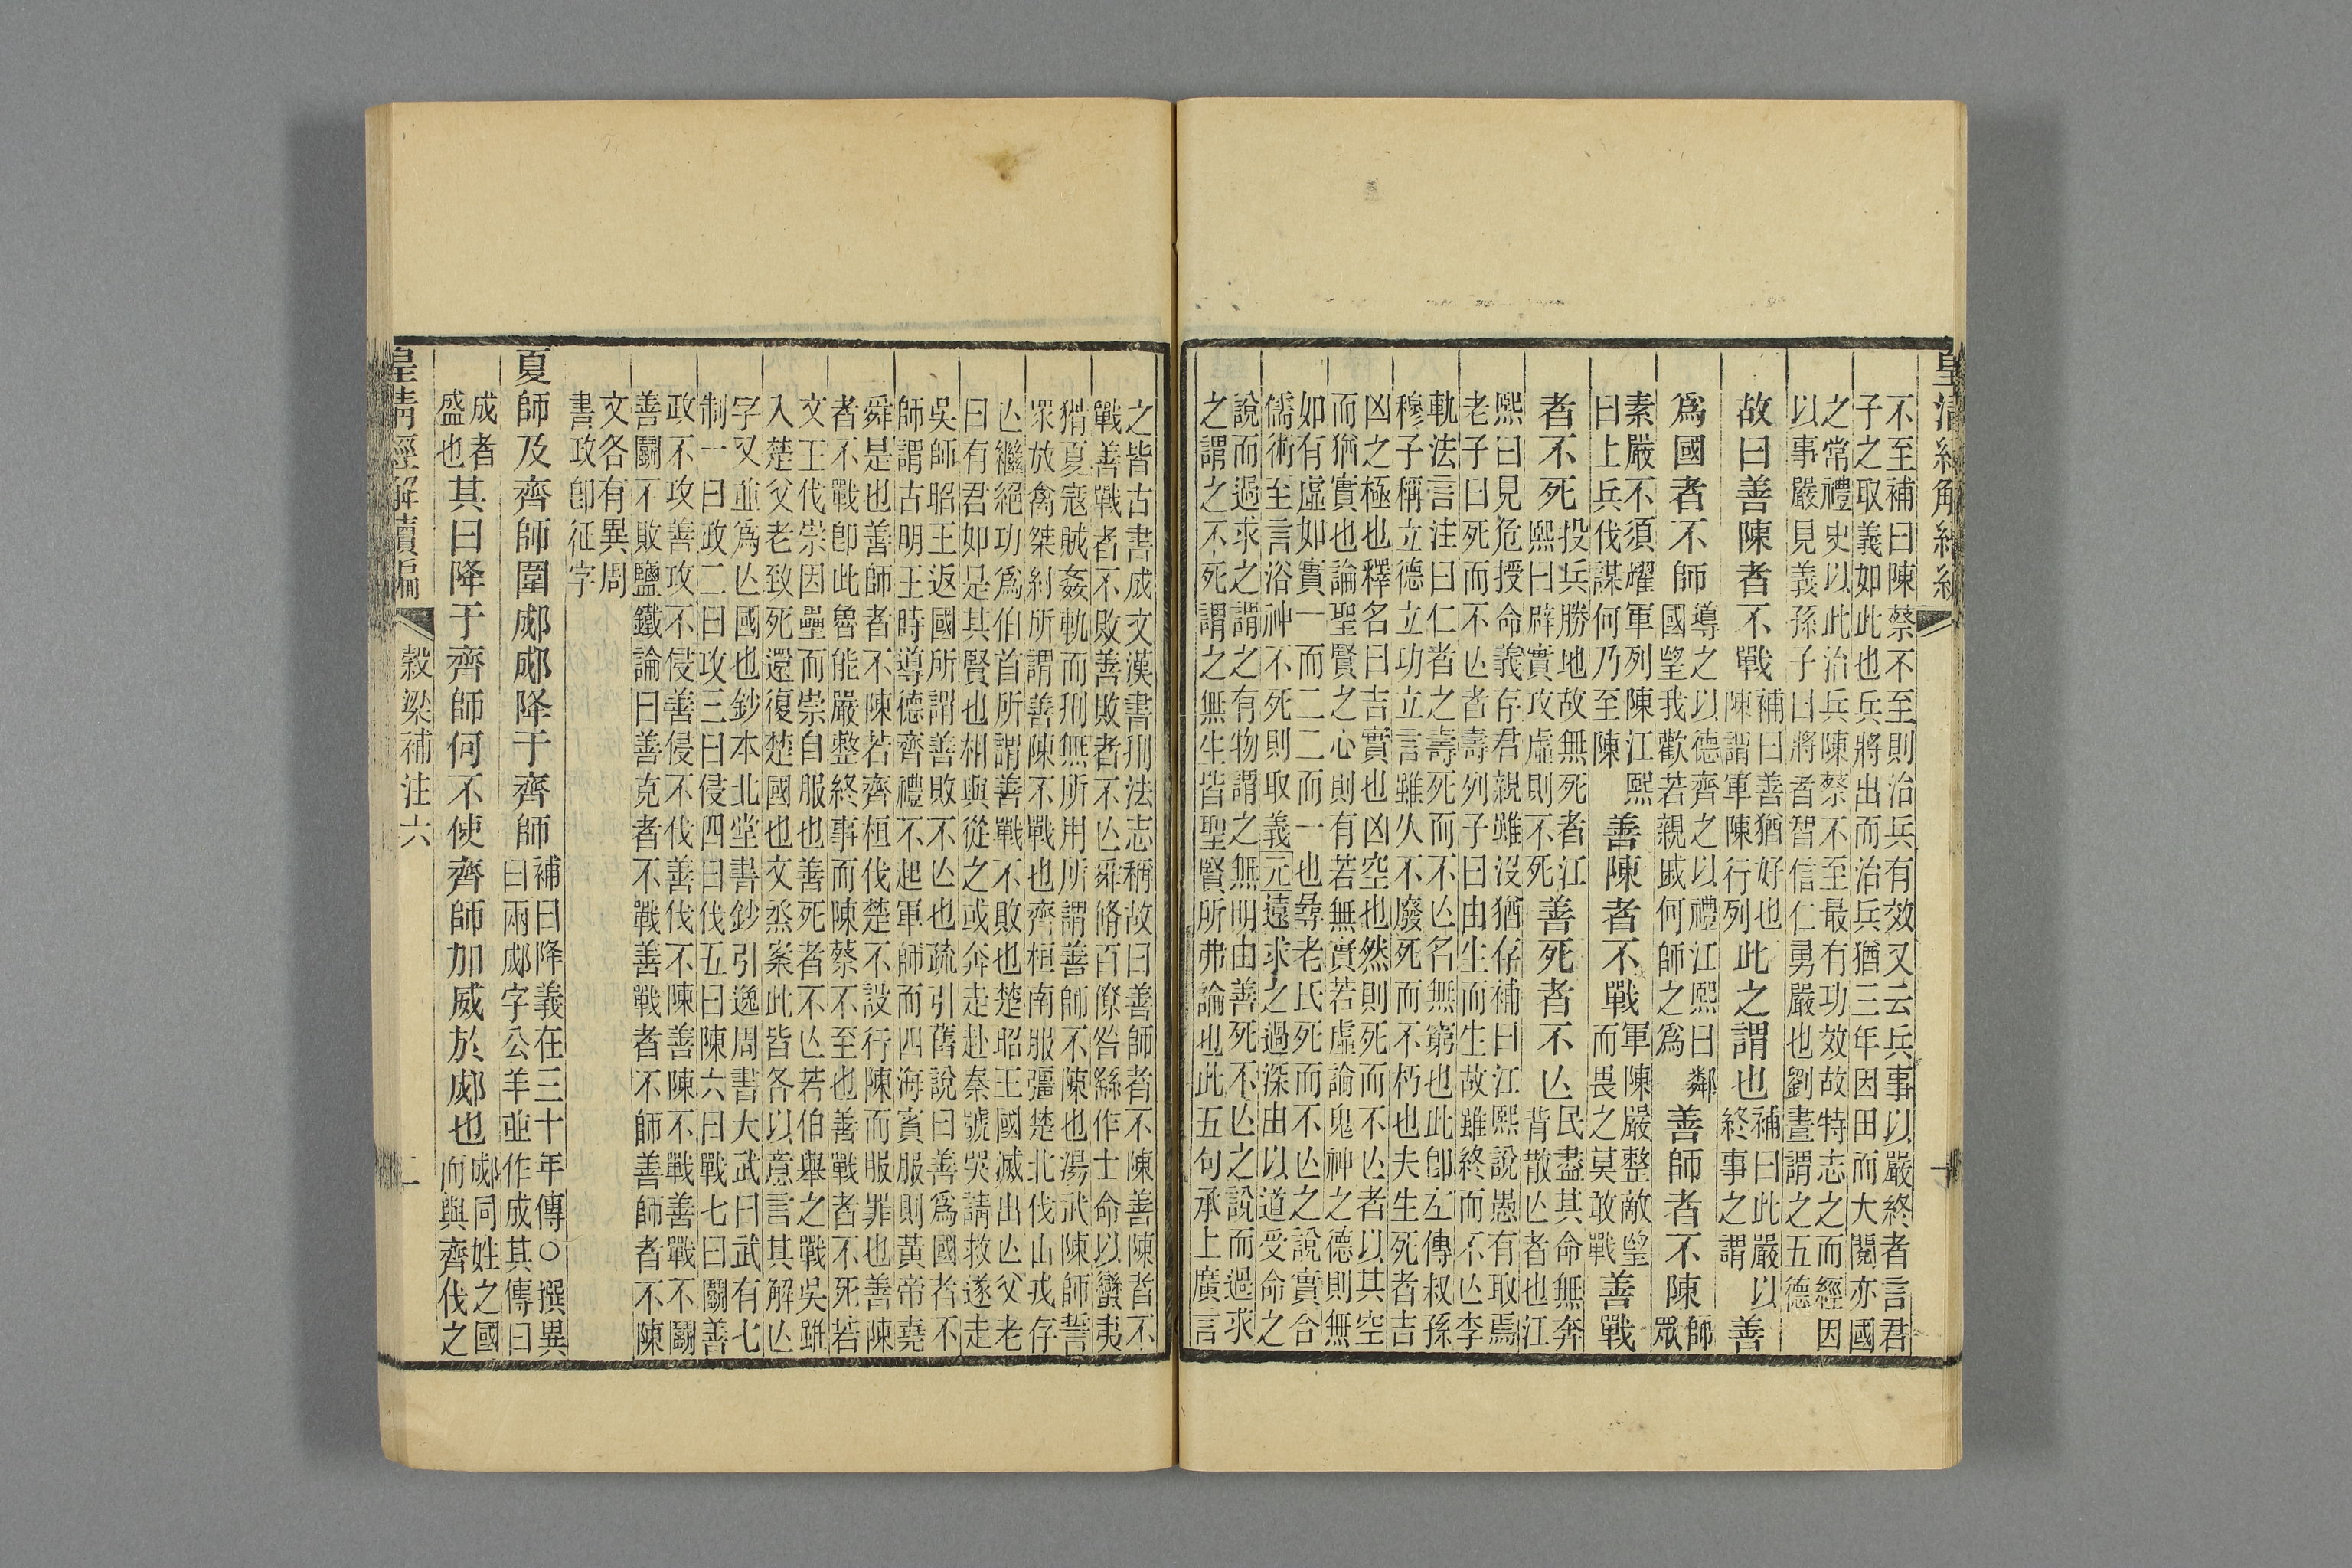 皇清經解續編
不至補曰陳蔡不至則治兵有效又云兵事以嚴終者言君
子之取義如此也兵將出而治兵猶三年因田而大閱亦國
之常禮史以此治兵陳蔡不至最有功效故特志之而經因
以事嚴見義孫子曰將者智信仁勇嚴也劉晝謂之五德
故曰善陳者不戰補曰善猶好也陳謂軍陳行列此之謂也補曰此嚴以終事之謂善
爲國者不師導之以德齊之以禮江熙曰鄰國望我歡若親戚何師之爲善師者不陳師眾
素嚴不須耀軍列陳江熙曰上兵伐謀何乃至陳善陳者不戰軍陳嚴整敵望而畏之莫敢戰善戰
者不死投兵勝地故無死者江熙曰辟實攻虛則不死善死者不亾民盡其命無奔背散亾者也江
熙曰見危授命義存君親雖沒猶存補曰江熙說愚有取焉
老子曰死而不亾者壽列子曰由生而生故雖終而不亾李
軌法言注曰仁者之壽死而不亾名無窮也此卽左傳叔孫
穆子稱立德立功立言雖久不廢死而不朽也夫生死者吉
凶之極也釋名曰吉實也凶空也然則死而不亾者以其空
而猶實也論聖賢之心則有若無實若虛論鬼神之德則無
如有虛如實一而二二而一也彝老氏死而不亾之說實合
儒術至言浴神不死則取義元遠求之過深由以道受命之
說而過求之謂之有物謂之無明由善死不亾之說而過求
之謂之不死謂之無生皆聖賢所弗論也此五句承上廣言
之皆古書成文漢書刑法志稱故曰善師者不陳善陳者不
戰善戰者不敗善敗者不亾舜脩百僚咎繇作士命以蠻夷
猾夏寇賊姦軌而刑無所用所謂善師不陳也湯武陳師誓
眾放禽桀紂所謂善陳不戰也齊桓南服彊楚北伐山戎存
亾繼絕功爲伯首所謂善戰不敗也楚昭王國滅出亾父老
曰有君如是其賢也相與從之或奔走赴秦號哭請救遂走
吳師昭王返國所謂善敗不亾也疏引舊說曰善爲國者不
師謂古明王時導德齊禮不起軍師而四海賓服則黃帝堯
舜是也善師者不陳若齊桓伐楚不設行陳而服罪也善陳
者不戰卽此魯能嚴整終事而陳蔡不至也善戰者不死若
文王伐崇因壘而崇自服也善死者不亾若伯舉之戰吳雖
入楚父老致死還復楚國也文烝案此皆各以意言其解亾
字又並爲亾國也鈔本北堂書鈔引逸周書大武曰武有七
制一曰政二曰攻三曰侵四曰伐五曰陳六曰戰七曰鬭善
政不攻善攻不侵善侵不伐善伐不陳善陳不戰善戰不鬭
善鬭不敗鹽鐵論曰善克者不戰善戰者不師善師者不陳
文各有異周
書政卽征字
夏師及齊師圍郕郕降于齊師補曰降義在三十年傳○撰異曰兩郕字公羊並作成其傳曰
成者盛也其曰降于齊師何不使齊師加威於郕也郕同姓之國而與齊伐之
皇清經解續編 穀梁補注六